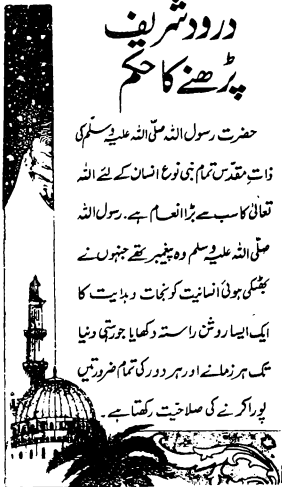 درود شریف
پڑھنے کا حکم
حضرت رسول اللہ صلّی اللہ علیہ وسلّم کی
ذاتِ مقدّس تمام نبی نوع انسان کے لئے اللہ
تعالیٰ کا سب سے بڑا انعام ہے۔ رسول اللہ
صلّی اللہ علیہ وسلم وہ پیغمبر تھے جنہوں نے
بھٹکی ہوئی انسانیت کو نجات و ہدایت کا
ایک ایسا روشن راستہ دکھایا جو رہتی دنیا
تک ہر زمانے اور ہر دور کی تمام ضرورتیں
پورا کرنے کی صلاحیت رکھتا ہے۔